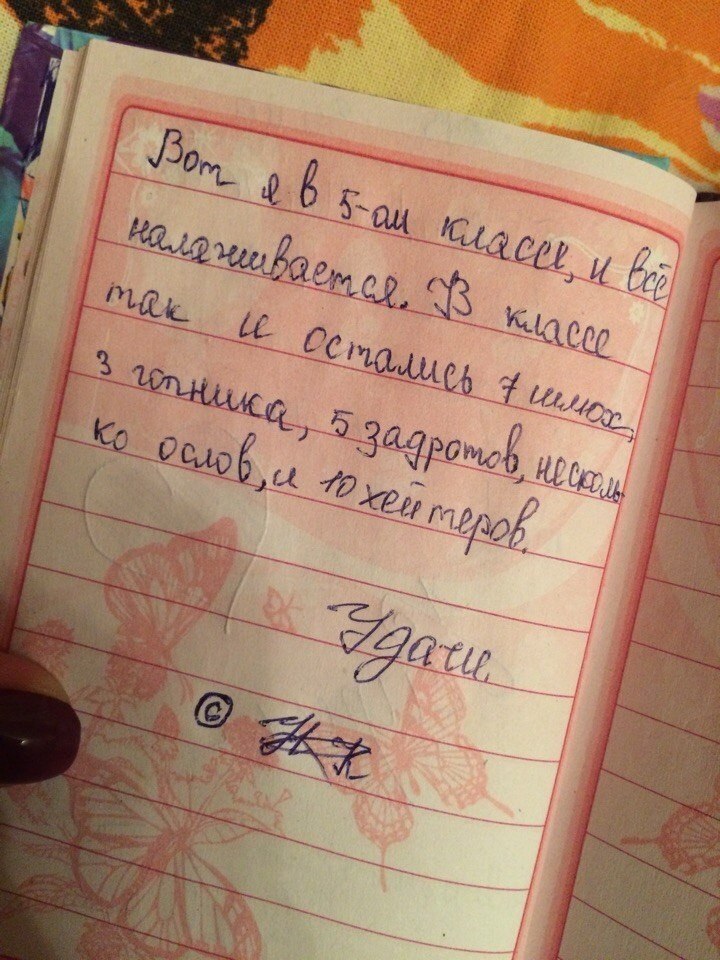 Вот я в 5-ом классе, и всё
налаживается. В классе
так и остались 7 шмох,
3 гопника, 5 задротов, несколь-
ко ослов, и 10 хейтеров.
Удачи.
©